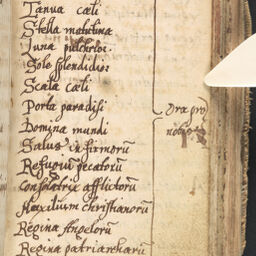 Ianua cæli
Stella matutina
Luna pulchrior
Sole splendidior
Scala cæli
Porta paradisi
Domina mundi
Salus infirmorũ
Refugiũ pecatorũ
Consolatrix afflictorũ
Auxilium christianorũ
Regina Angelorũ
Regina patriarcharũ
Ora pro
nobis